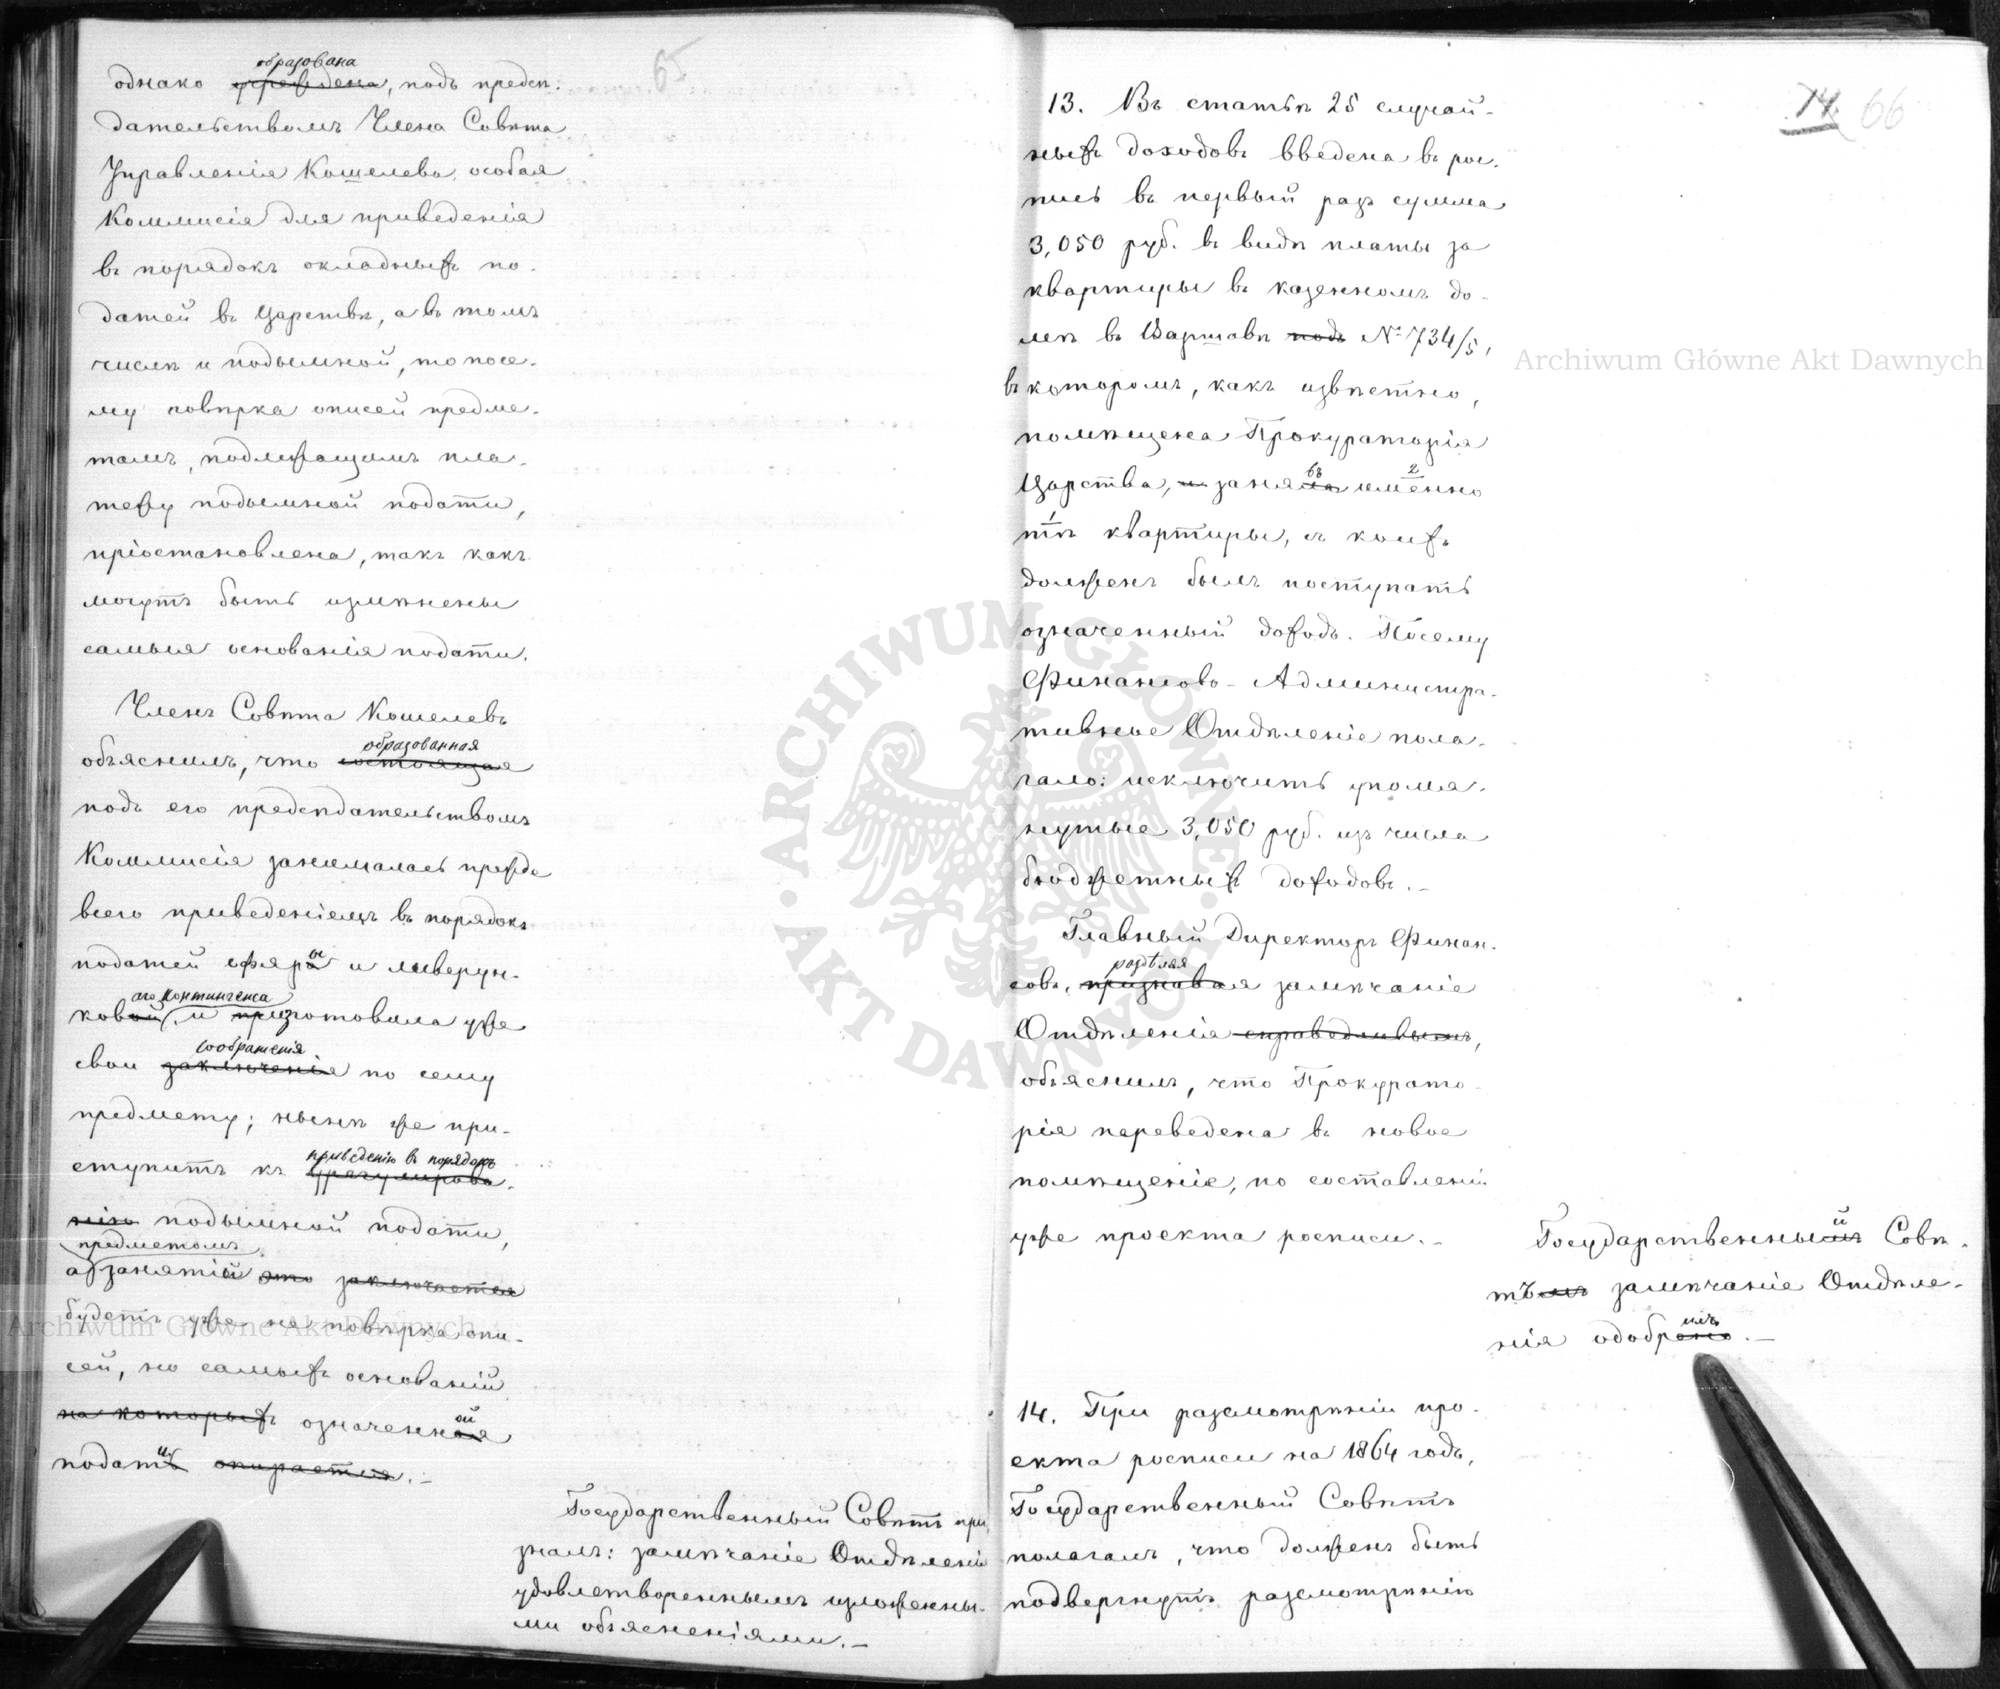 65
образована
однако учреждена, подъ предсѣ-
дательствомъ Члена Совѣта
Управленія Кошелева, особая
Коммисія для приведенія
въ порядокъ окладныхъ по-
датей въ Царствѣ, а въ томъ
числѣ и подымной, то посе-
му повѣрка описей предме-
тамъ, подлежащимъ пла-
тежу подымной подати,
пріостановлена, такъ какъ
могутъ быть измѣнены
самыя основанія подати.
Членъ Совѣта Кошелевъ
образованная
объяснилъ, что состоящая
подъ его предсѣдательствомъ
Коммисія занималась прежде
всего приведеніемъ въ порядокъ
податей офяры и ливерун-
аго контингенса
ковой, и приготовила уже
соображенія
свои заключенія по сему
предмету; нынѣ же при-
приведенію въ порядокъ
ступитъ къ урегулирова-
нію подымной подати,
предметомъ
а занятій это заключается
будетъ уже не повѣрка опи-
сей, но самыхъ основаній
на которыхъ означенной
подати опирается.—
Государственный Совѣтъ при-
зналъ: замѣчаніе Отдѣленія
удовлетвореннымъ изложенны-
ми объясненіями.—
14. 66
13. Въ статьѣ 25 случай-
ныхъ доходовъ введена въ рос-
пись въ первый разъ сумма
3,050 руб. въ видѣ платы за
квартиры въ казенномъ до-
мѣ въ Варшавѣ подъ № 734/5,
въ которомъ, какъ извѣстно,
помѣщена Прокураторія
въ 2
Царства, и заняла именно
1
тѣ квартиры, съ коихъ
долженъ былъ поступать
означенный доходъ. Посему
Финансово-Администра-
тивное Отдѣленіе пола-
гало: исключить упомя-
нутые 3,050 руб. изъ числа
бюджетныхъ доходовъ.—
Главный Директоръ Финан-
раздѣляя
совъ, признавая замѣчаніе
Отдѣленія справедливымъ,
объяснилъ, что Прокурато-
рія переведена въ новое
помѣщеніе, по составленіи
уже проекта росписи.—
й
Государственнымъ Совѣ-
томъ замѣчаніе Отдѣле-
илъ
нія одобрено.—
14. При разсмотрѣніи про-
екта росписи на 1864 годъ,
Государственный Совѣтъ
полагалъ, что долженъ быть
подвергнутъ разсмотрѣнію
Archiwum Główne Akt Dawnych
Archiwum Główne Akt Dawnych
ARCHIWUM GŁÓWNE AKT DAWNYCH